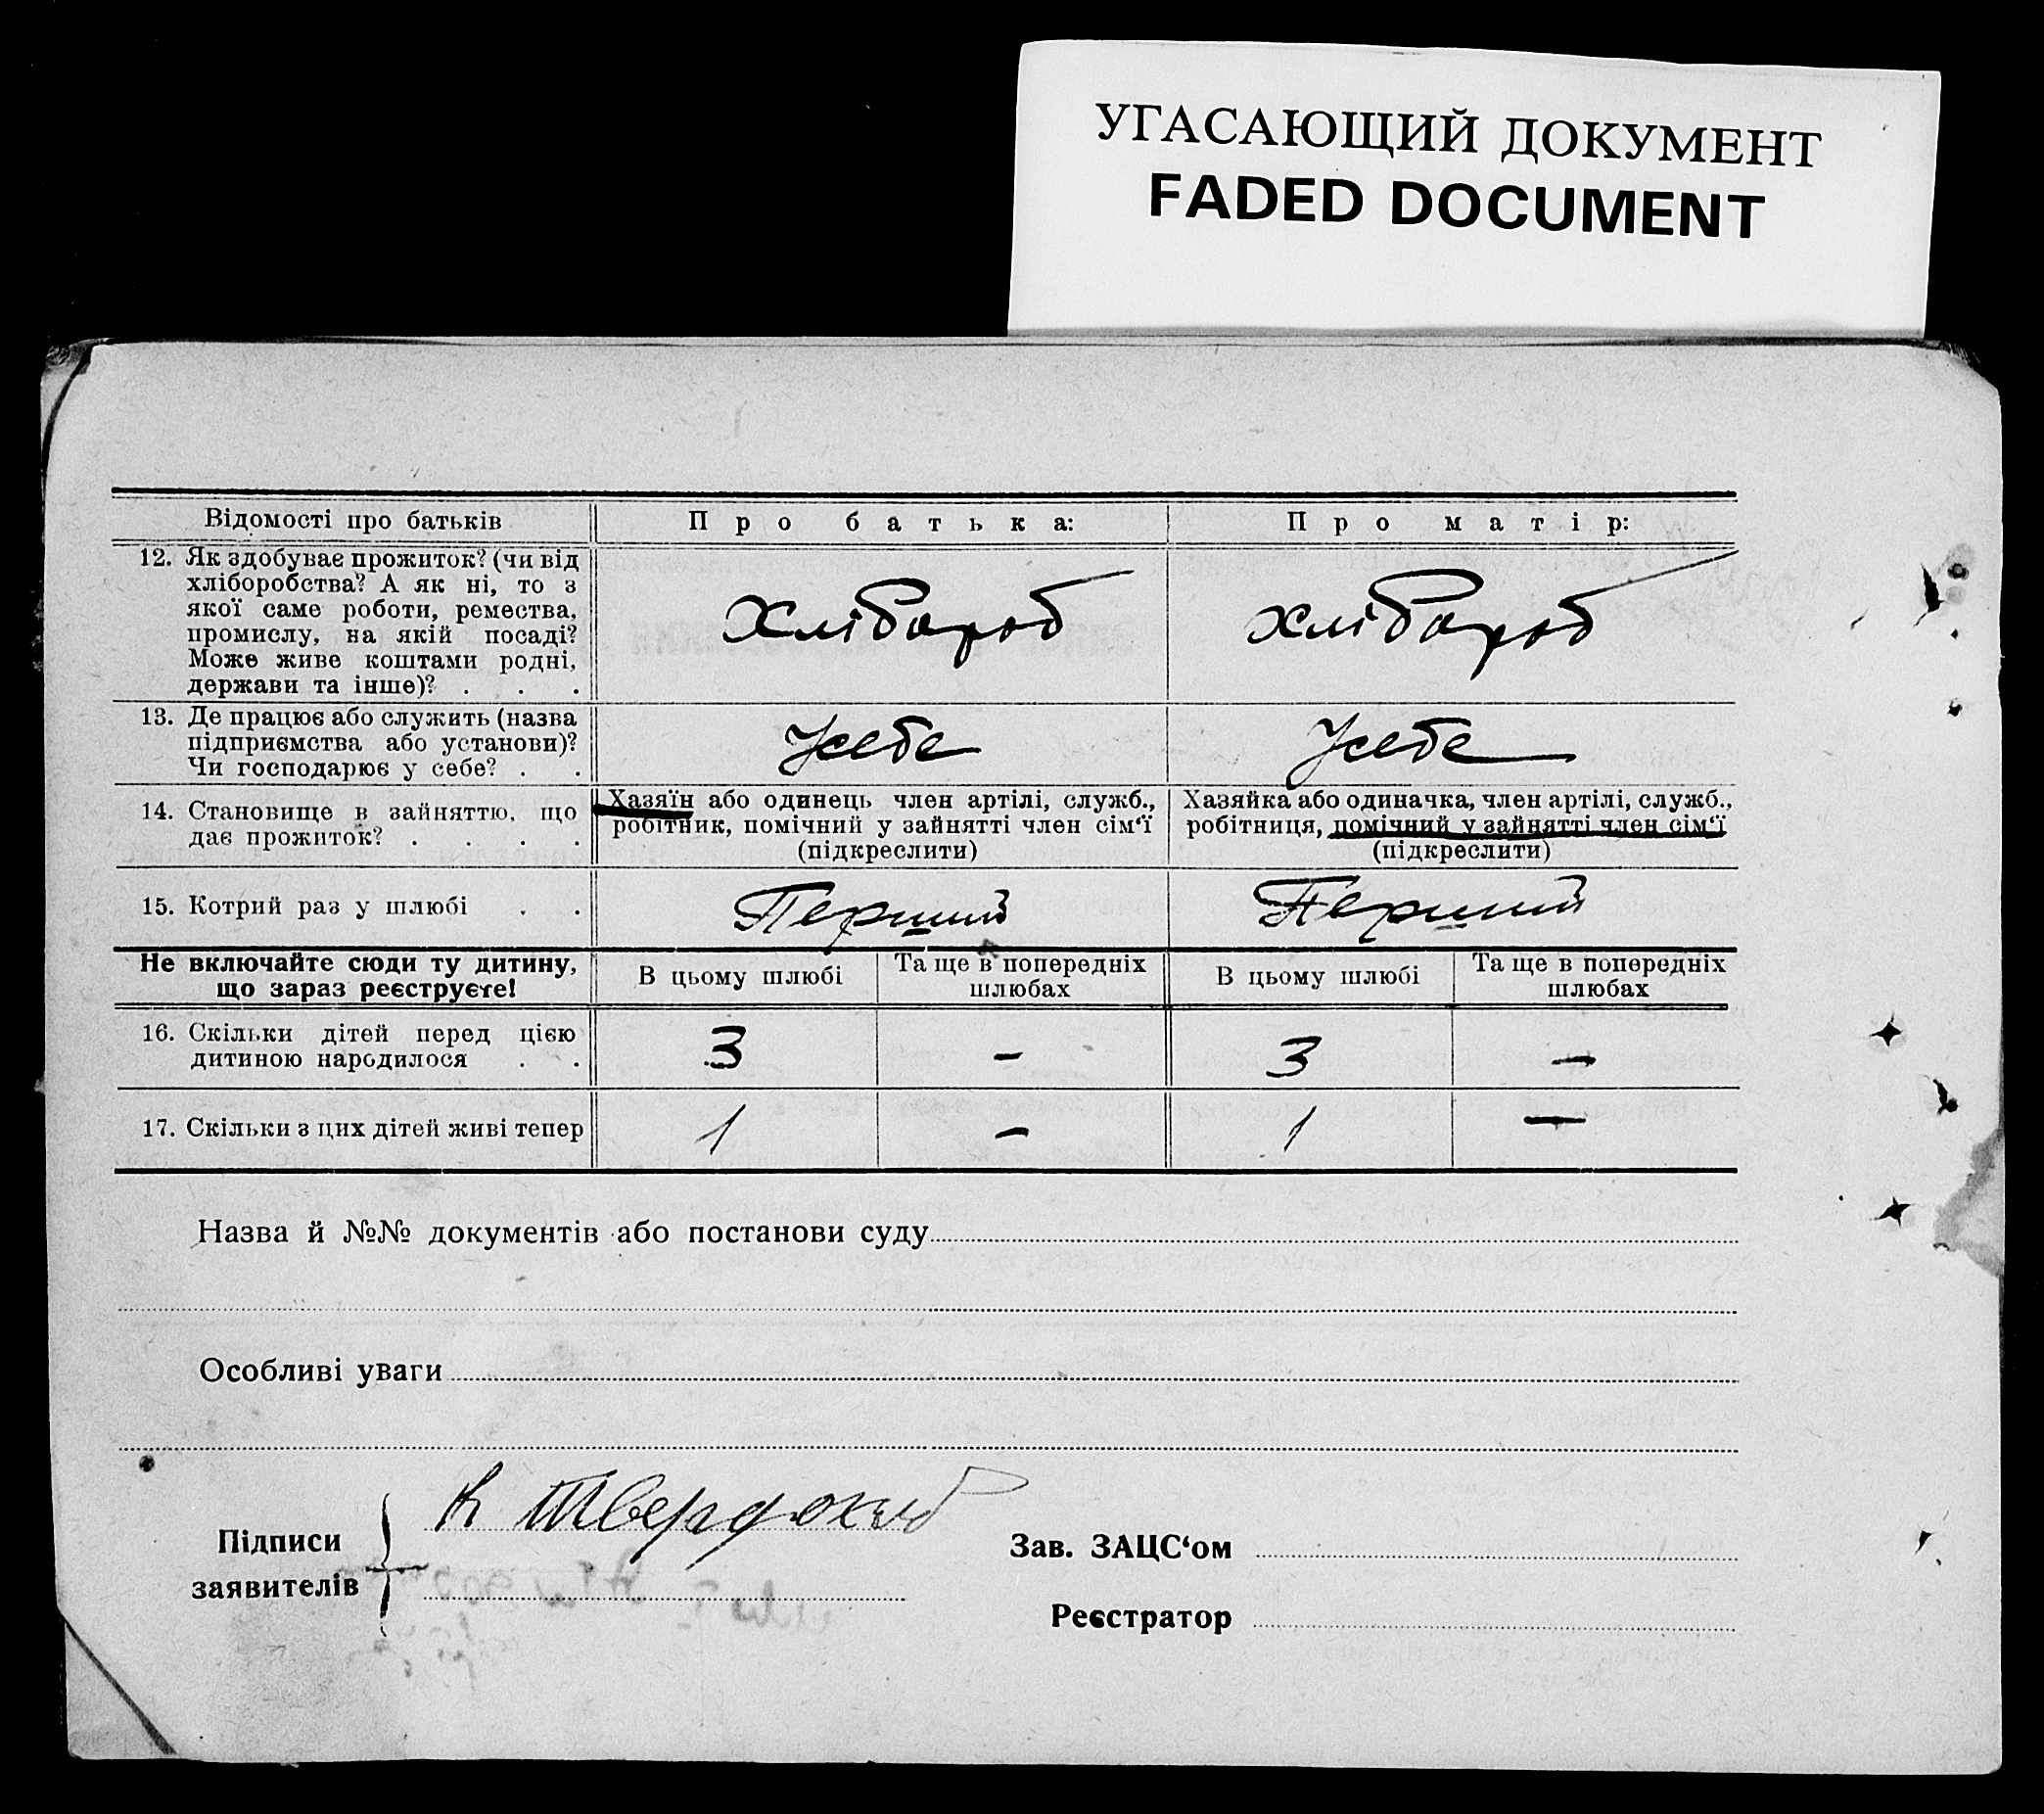 УГАСАЮЩИЙ ДОКУМЕНТ
FADED DOCUMENT
Відомості про батьків
Про батька:
Про матір:
12. Як здобуває прожиток? (чи від
хліборобства? А як ні, то з
якої саме роботи, ремества,
промислу, на якій посаді?
Може живе коштами родні,
держави та інше)? . . .
Хлібороб
Хлібороб
13. Де працює або служить (назва
підприємства або установи)?
Чи господарює у себе? . .
Усебе
Усебе
14. Становище в зайняттю, що
дає прожиток? . . . .
Хазяїн або одинець член артілі, служб.,
робітник, помічний у зайнятті член сім‘ї
(підкреслити)
Хазяйка або одиначка, член артілі, служб.,
робітниця, помічний у зайнятті член сім‘ї
(підкреслити)
15. Котрий раз у шлюбі . .
Перший
Перший
Не включайте сюди ту дитину,
що зараз реєструєте!
В цьому шлюбі
Та ще в попередніх
шлюбах
В цьому шлюбі
Та ще в попередніх
шлюбах
16. Скільки дітей перед цією
дитиною народилося . .
3
-
3
—
17. Скільки з цих дітей живі тепер
1
-
1
—
Назва й №№ документів або постанови суду
Особливі уваги
Підписи
заявителів
К Твердохліб
Зав. ЗАЦС‘ом
Реєстратор